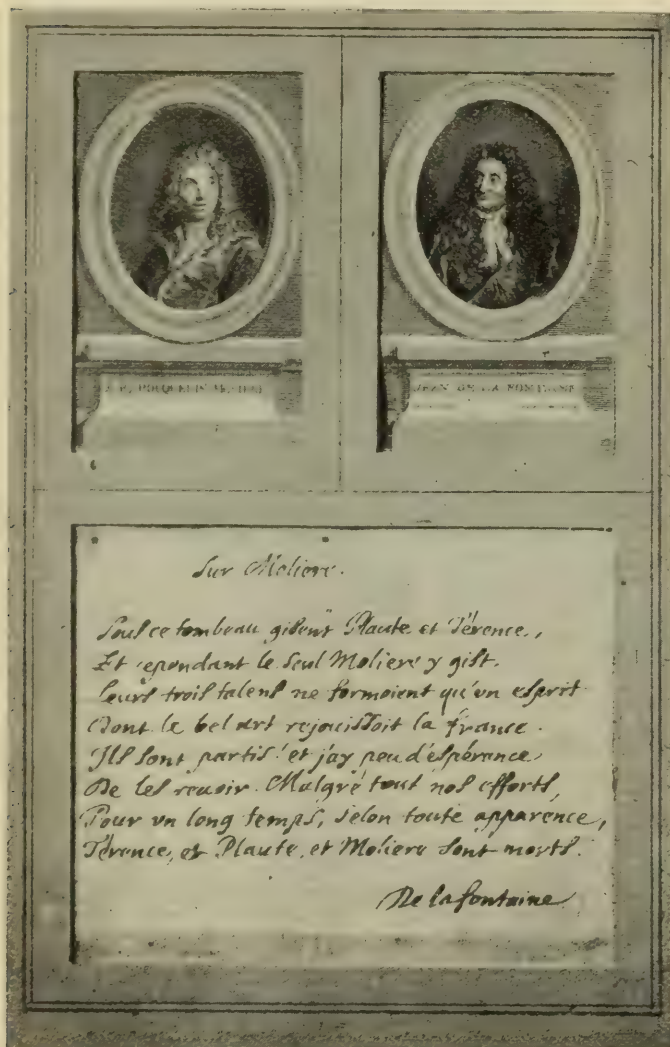 J. B. POCQUELIN MOLIERE
JEAN DE LA FONTAINE
Sur Moliere.
Sous ce tombeau gisent Plaute et Térence,
Et cependant le seul Moliere y gist.
Leurs trois talens ne formoient qu'vn esprit
Dont le bel art rejouissoit la france.
Ils sont partis! et j'ay peu d'espérance
De les revoir. Malgré tout nos efforts,
Pour vn long temps, selon toute apparence,
Térence, et Plaute, et Moliere sont morts.
De la fontaine